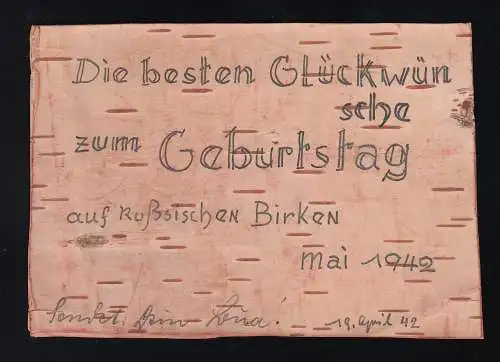 Die besten Glückwün
sche
zum Geburtstag
auf Rußsischen Birken
Mai 1942
Sendet Dein
19. April 42